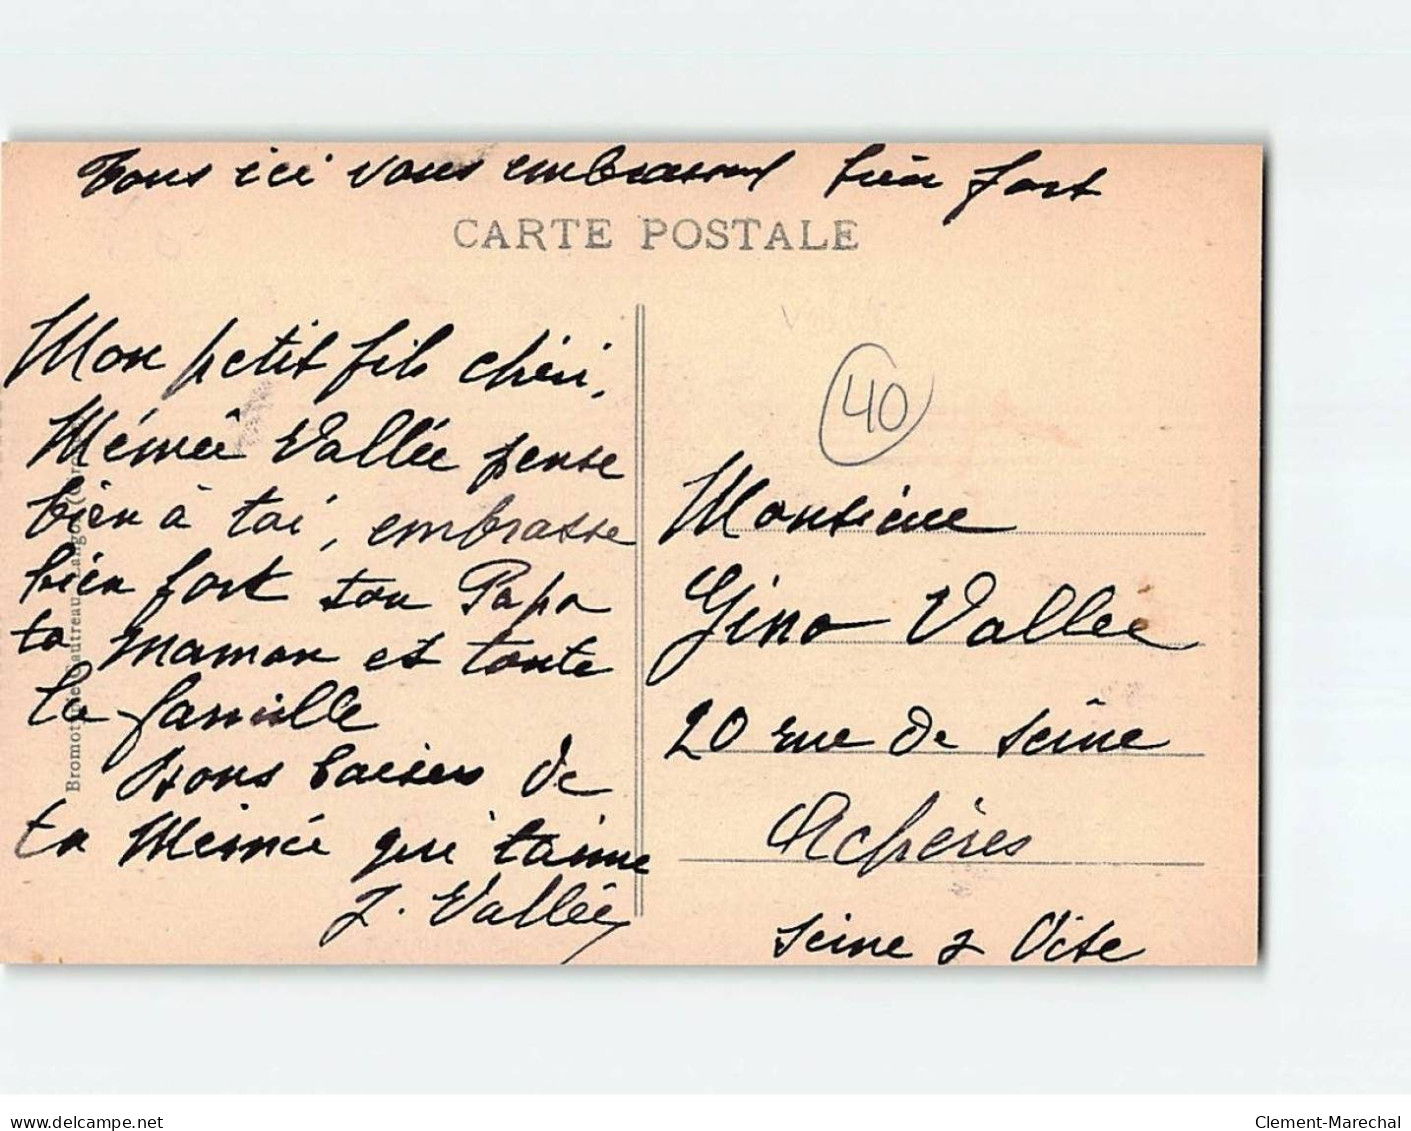 Tous ici vous embrassent bien fort
CARTE POSTALE
Mon petit fils chéri,
Mémée Vallée pense
bien à toi, embrasse
bien fort ton Papa
ta Maman et toute
la famille
bons baisers de
ta Mémée qui t'aime
J. Vallée
40
Monsieur
Gino Vallée
20 rue de Seine
Achères
Seine & Oise
Bromotypie Gautreau, Langon
www.delcampe.net
Clement-Marechal